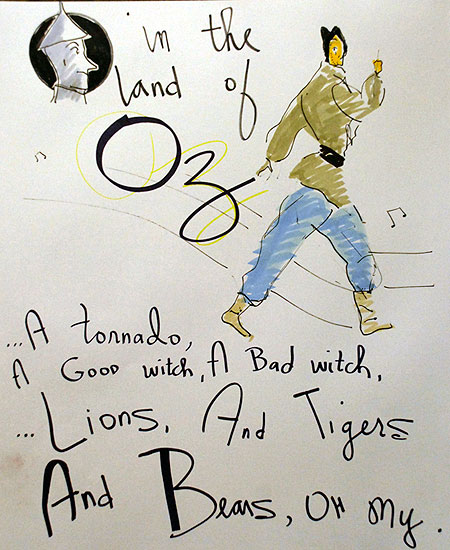 in the
land of
Oz
...A tornado,
A Good witch, A Bad witch,
...Lions, And Tigers
And Bears, OH My.